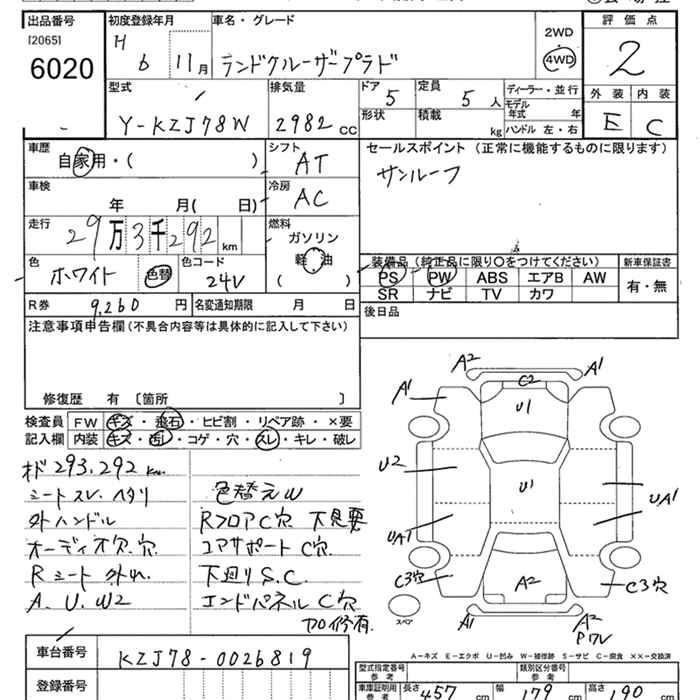 出品番号 初度登録年月 車名・グレード 評価点
[2065] 2WD
6020 H 6 11月 ランドクルーザープラド 4WD 2
型式 排気量 ドア 5 定員 5人 ディーラー・並行 外装 内装
Y-KZJ78W 2982cc 形状 積載 kg モデル年式 年 E C
ハンドル 左・右
車歴 シフト セールスポイント(正常に機能するものに限ります)
自家用・( ) AT サンルーフ
車検 冷房
年 月( 日) AC
走行 燃料
29万3千292km ガソリン
軽油
色 色コード ( ) 装備品(純正品に限り〇をつけてください) 新車保証書
ホワイト 色替 24V PS PW ABS エアB AW 有・無
SR ナビ TV カワ
R券 9,260円 名変通知期限 月 日 後日品
注意事項申告欄(不具合内容等は具体的に記入して下さい)
修復歴 有 〔箇所 〕
検査員 FW キズ・飛石・ヒビ割・リペア跡・×要
記入欄 内装 キズ・汚レ・コゲ・穴・スレ・キレ・破レ
オド293,292km
シートスレ、ヘタリ 色替えW
外ハンドル RフロアC穴 下見要
オーディオ欠、穴 コアサポートC穴
Rシート外れ 下廻りS.C
A.U.W2 エンドパネルC穴
加修有
A2 A1
A1 C2
U1
U2 U1 UA1
UA1
C3穴 A2 C3穴
スペア A1 A2
Pワレ
A-キズ E-エクボ U-凹み W-補修跡 S-サビ C-腐食 ××-交換済
車台番号 KZJ78-0026819 型式指定番号 参考 類別区分番号 参考
登録番号 車庫証明用 参考 長さ 457cm 幅 179cm 高さ 190cm